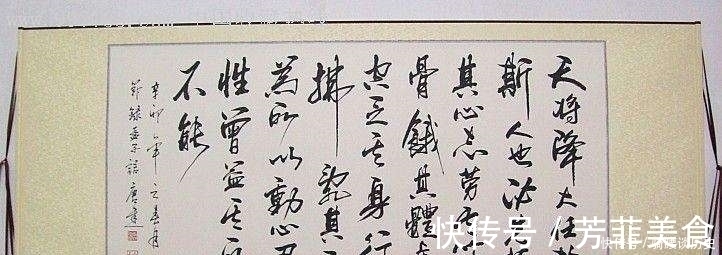 天将降大任於
斯人也必先
其心志劳其
骨餓其體膚
空乏其身行
拂亂其
為所以動心忍
性曾益其所
不能
辛卯年之春月
節録孟子語唐
快传号/芳菲美食